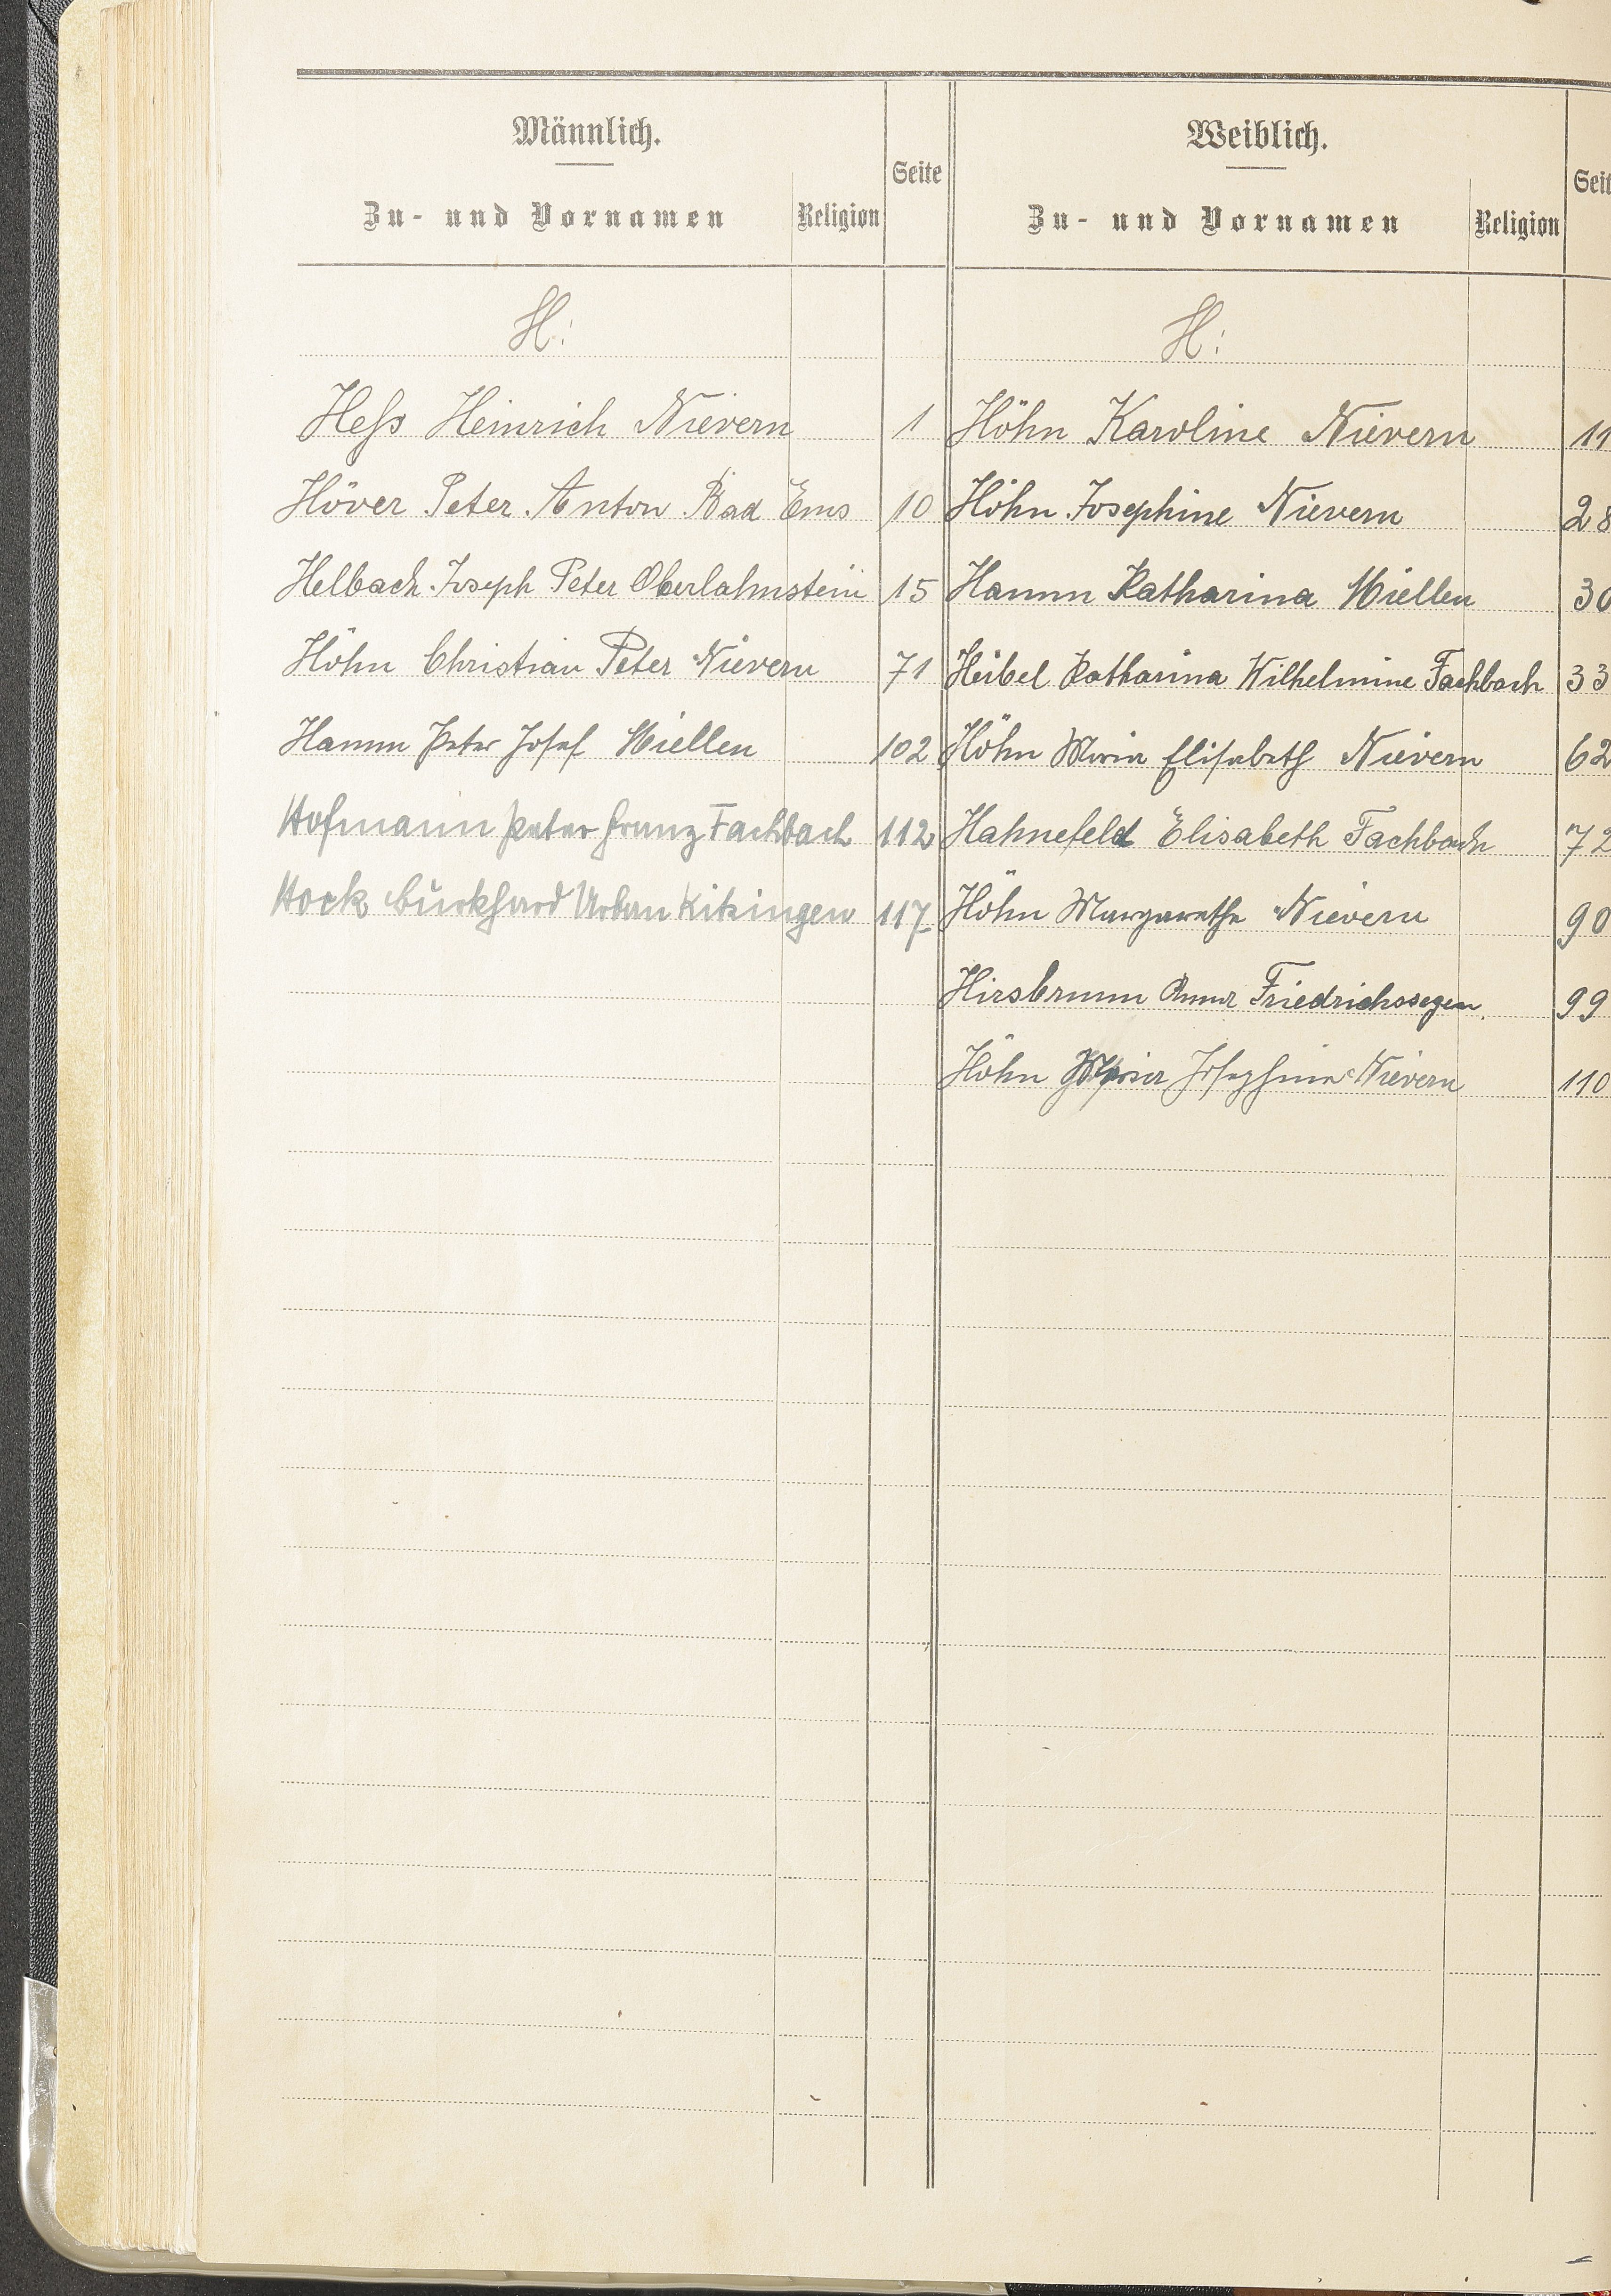 Männlich.
Zu- und Vornamen Religion Seite
H:
Heſs Heinrich Nievern 1
Höver Peter Anton Bad Ems 10
Helbach Joseph Peter Oberlahnstein 15
Höhn Christian Peter Nievern 71
Hamm Peter Josef Miellen 102
Hofmann Peter Franz Fachbach 112
Hock Burkhard Urban Kitzingen 117
Weiblich.
Zu- und Vornamen Religion Seit
H:
Höhn Karoline Nievern 11
Höhn Josephine Nievern 28
Hamm Katharina Miellen 30
Heibel Katharina Wilhelmine Fachbach 33
Höhn Maria Elisabeth Nievern 62
Hahnefeld Elisabeth Fachbach 72
Höhn Margarethe Nievern 90
Hirsbrunn Anna Friedrichssegen 99
Höhn Maria Josephine Nievern 110